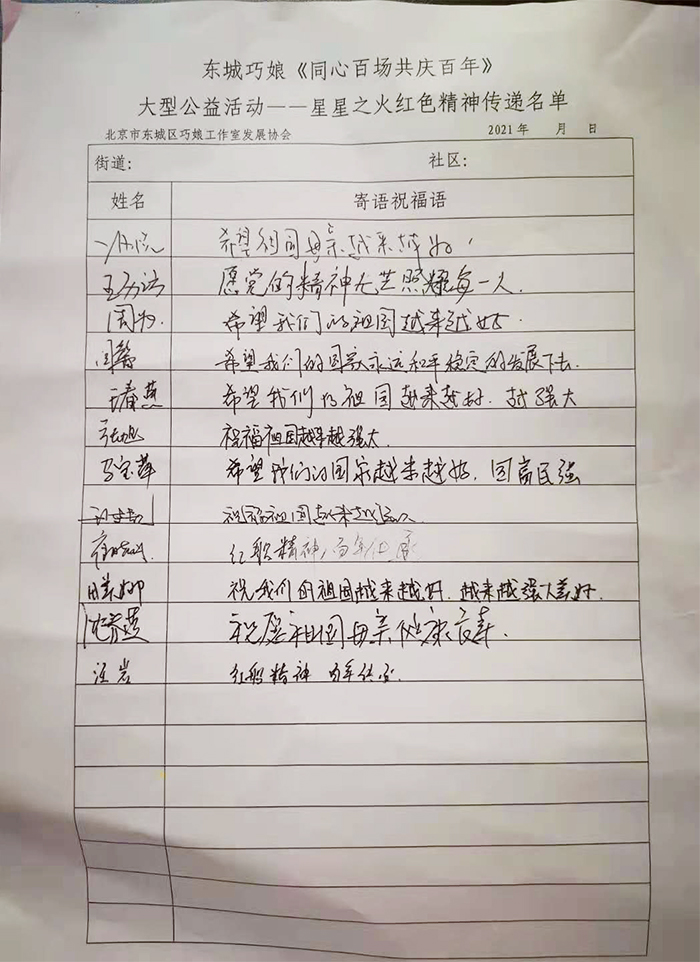 东城巧娘《同心百场共庆百年》
大型公益活动——星星之火红色精神传递名单
北京市东城区巧娘工作室发展协会 2021年 月 日
街道: 社区:
姓名 寄语祝福语
希望祖国母亲越来越好
愿党的精神光芒照耀每一人.
希望我们的祖国越来越好.
希望我们的国家永远和平稳定的发展下去.
王春燕 希望我们的祖国越来越好.越强大
张旭 祝福祖国越来越强大.
马宝萍 希望我们的国家越来越好.国富民强
祝福祖国越来越强大
红船精神,百年传承
祝我们的祖国越来越好.越来越强大美好.
祝愿祖国母亲健康长寿.
汪岩 红船精神 百年传承.